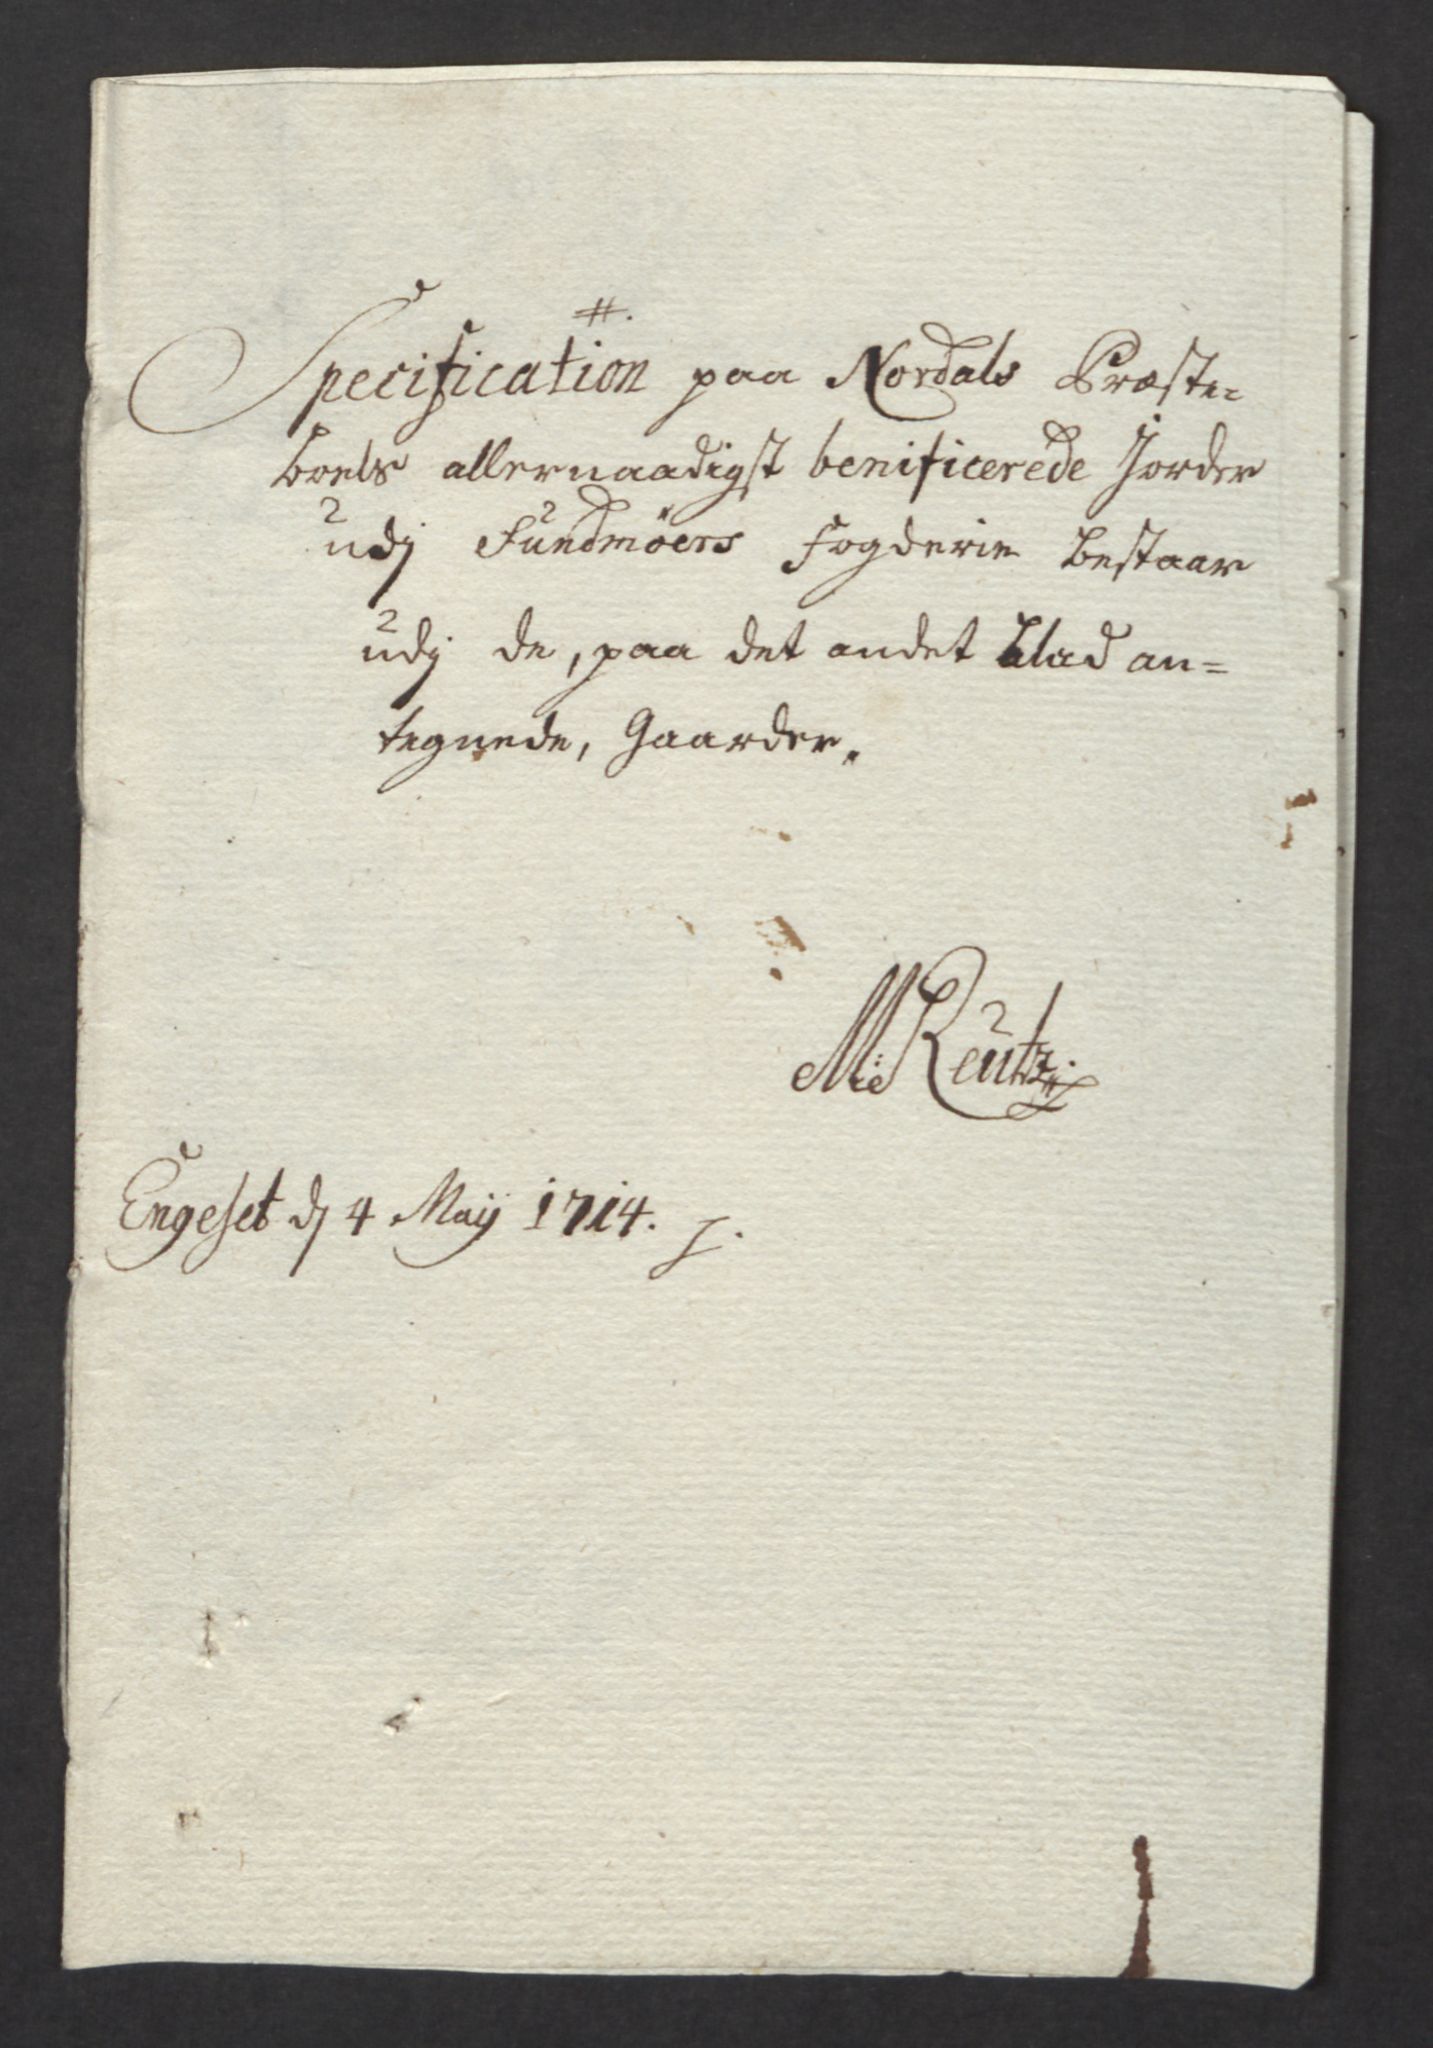 #.
Specification paa Nordals Præste=
boels allernaadigst benificerede Jorder
udj Sundmöers fogderie bestaar
udj de, paa det andet blad an=
tegnede, Gaarder.
Reutz
Engeset dj 4 Maij 1714.